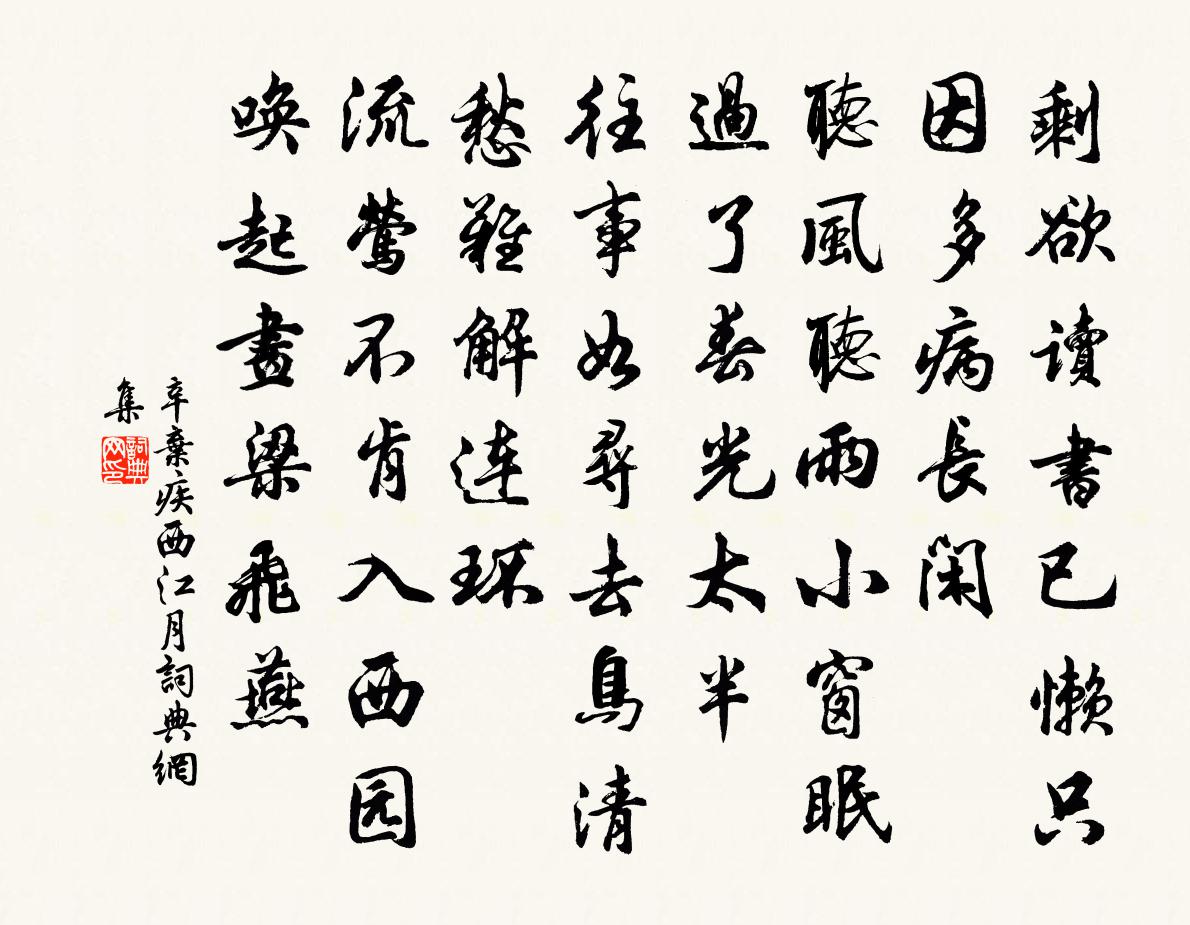 剩欲讀書已懒只
因多病長閑
聽風聽雨小窗眠
過了春光太半
往事如尋去鳥清
愁難解連環
流鶯不肯入西园
唤起畫梁飛燕
辛棄疾西江月詞典網
集
詞典網印